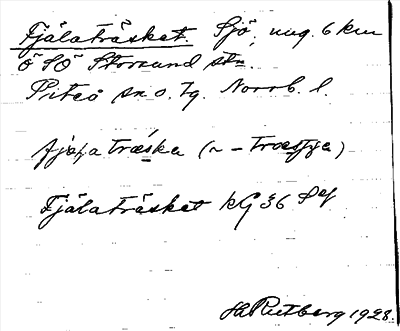 Fjälaträsket. Sjö, ung. 6 km
ö SÖ Storsund stn.
Piteå sn o. tg. Norrb. l.
fjæ̀ḷa træ̀ska (~ -
Fjälaträsket KG 36
H Rutberg 1928.